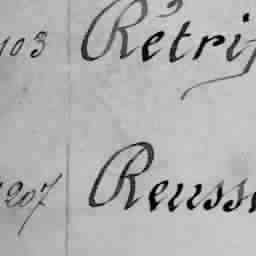 103 Rétrif
207 Reusse